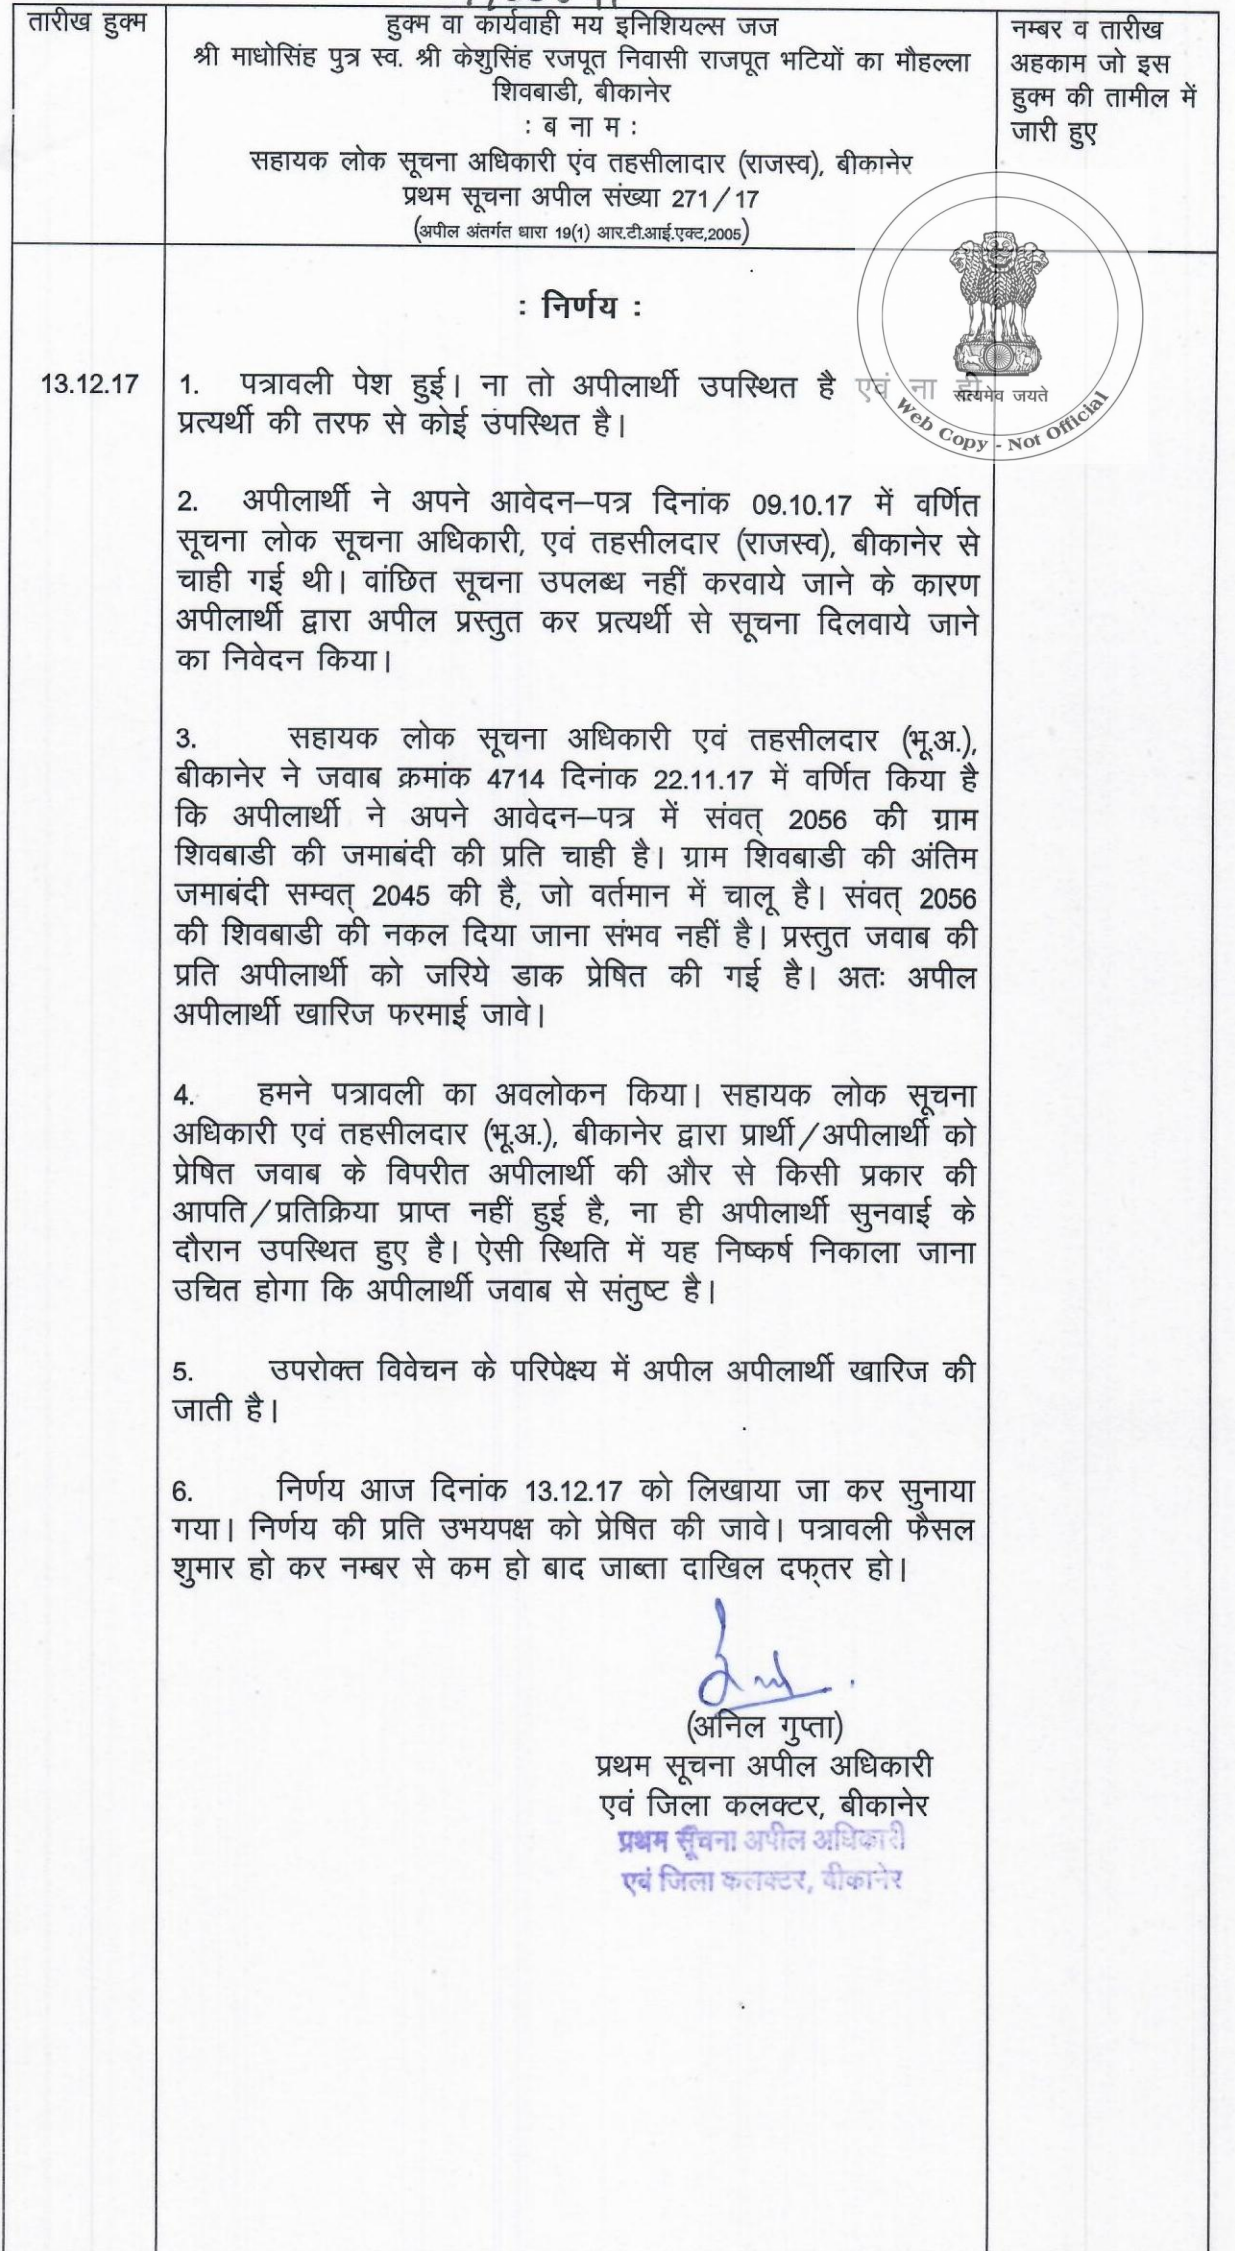 तारीख हुक्म
हुक्म वा कार्यवाही मय इनिशियल्स जज
श्री माधोसिंह पुत्र स्व. श्री केशुसिंह रजपूत निवासी राजपूत भटियों का मौहल्ला
शिवबाडी, बीकानेर
: ब ना म :
सहायक लोक सूचना अधिकारी एंव तहसीलादार (राजस्व), बीकानेर
प्रथम सूचना अपील संख्या 271/17
(अपील अंतर्गत धारा 19(1) आर.टी.आई.एक्ट,2005)
नम्बर व तारीख
अहकाम जो इस
हुक्म की तामील में
जारी हुए
: निर्णय :
13.12.17
1. पत्रावली पेश हुई। ना तो अपीलार्थी उपस्थित है एवं ना ही
प्रत्यर्थी की तरफ से कोई उपस्थित है।
सत्यमेव जयते
Web Copy - Not Official
2. अपीलार्थी ने अपने आवेदन–पत्र दिनांक 09.10.17 में वर्णित
सूचना लोक सूचना अधिकारी, एवं तहसीलदार (राजस्व), बीकानेर से
चाही गई थी। वांछित सूचना उपलब्ध नहीं करवाये जाने के कारण
अपीलार्थी द्वारा अपील प्रस्तुत कर प्रत्यर्थी से सूचना दिलवाये जाने
का निवेदन किया।
3. सहायक लोक सूचना अधिकारी एवं तहसीलदार (भू.अ.),
बीकानेर ने जवाब क्रमांक 4714 दिनांक 22.11.17 में वर्णित किया है
कि अपीलार्थी ने अपने आवेदन–पत्र में संवत् 2056 की ग्राम
शिवबाडी की जमाबंदी की प्रति चाही है। ग्राम शिवबाडी की अंतिम
जमाबंदी सम्वत् 2045 की है, जो वर्तमान में चालू है। संवत् 2056
की शिवबाडी की नकल दिया जाना संभव नहीं है। प्रस्तुत जवाब की
प्रति अपीलार्थी को जरिये डाक प्रेषित की गई है। अतः अपील
अपीलार्थी खारिज फरमाई जावे।
4. हमने पत्रावली का अवलोकन किया। सहायक लोक सूचना
अधिकारी एवं तहसीलदार (भू.अ.), बीकानेर द्वारा प्रार्थी/अपीलार्थी को
प्रेषित जवाब के विपरीत अपीलार्थी की और से किसी प्रकार की
आपति/प्रतिक्रिया प्राप्त नहीं हुई है, ना ही अपीलार्थी सुनवाई के
दौरान उपस्थित हुए है। ऐसी स्थिति में यह निष्कर्ष निकाला जाना
उचित होगा कि अपीलार्थी जवाब से संतुष्ट है।
5. उपरोक्त विवेचन के परिपेक्ष्य में अपील अपीलार्थी खारिज की
जाती है।
6. निर्णय आज दिनांक 13.12.17 को लिखाया जा कर सुनाया
गया। निर्णय की प्रति उभयपक्ष को प्रेषित की जावे। पत्रावली फैसल
शुमार हो कर नम्बर से कम हो बाद जाब्ता दाखिल दफ्तर हो।
(अनिल गुप्ता)
प्रथम सूचना अपील अधिकारी
एवं जिला कलक्टर, बीकानेर
प्रथम सूचना अपील अधिकारी
एवं जिला कलक्टर, बीकानेर